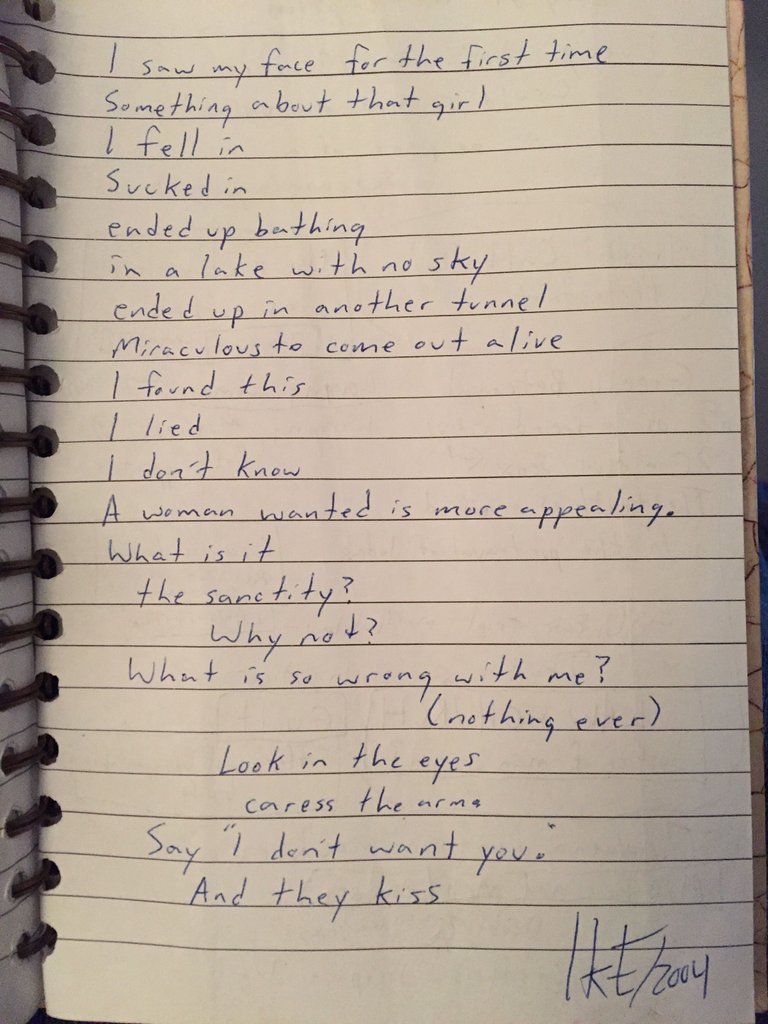 I saw my face for the first time
Something about that girl
I fell in
Sucked in
ended up bathing
in a lake with no sky
ended up in another tunnel
Miraculous to come out alive
I found this
I lied
I don't know
A woman wanted is more appealing.
What is it
the sanctity?
Why not?
What is so wrong with me?
(nothing ever)
Look in the eyes
caress the arms
Say "I don't want you."
And they kiss
lkt/2004